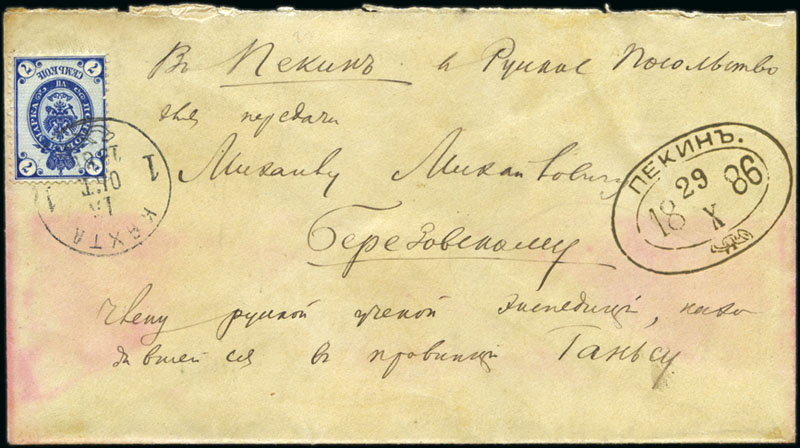 Въ Пекинъ въ Русское Посольство
для передачи
Михаилу Михайловичу
Березовскому
Члену русской ученой экспедиціи, нахо
дившейся въ провинціи Ганьсу
ПЕКИНЪ.
29
18 X 86
КЯХТА
1 1
ОКТ
188
ПОЧТОВАЯ МАРКА
СЕМЬ КОП.
7 7
7 7